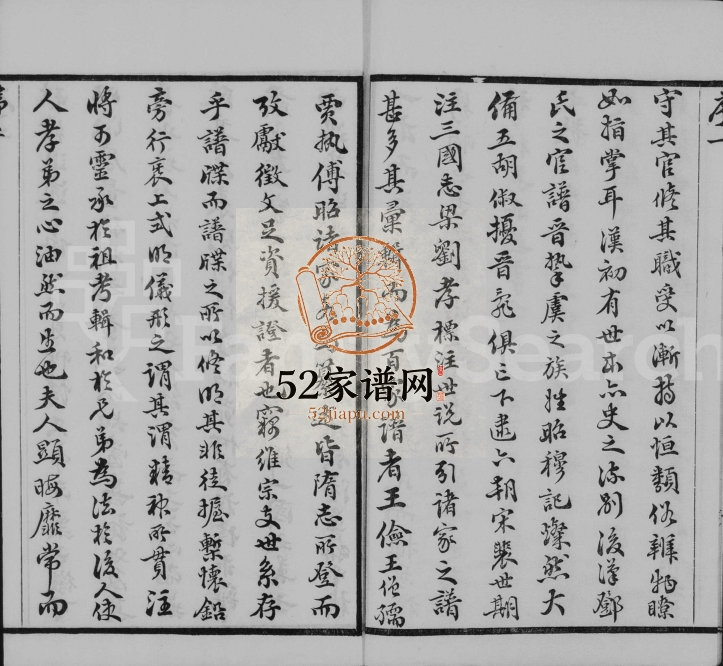 序一
守其官修其職受以漸持以恒類俗辨物瞭
如指掌耳漢初有世本亦史之流別後漢鄧
氏之官譜晉摯虞之族姓昭穆記燦然大
備五胡俶擾晉乘俱亡下逮六朝宋裴世期
注三國志梁劉孝標注世說所引諸家之譜
甚多其彙稱百譜者王儉王僧孺
賈執傅昭諸家皆隋志所登而
攷獻徵文足資援證者也竊維宗支世系存
乎譜牒而譜牒之所以修明其非徒握槧懷鉛
旁行衺上式明儀形之謂其謂精神所貫注
將可靈承於祖考輯和於兄弟為法於後人使
人孝弟之心油然而生也夫人顯晦靡常而
52家谱网
52jiapu.com
FamilySearch